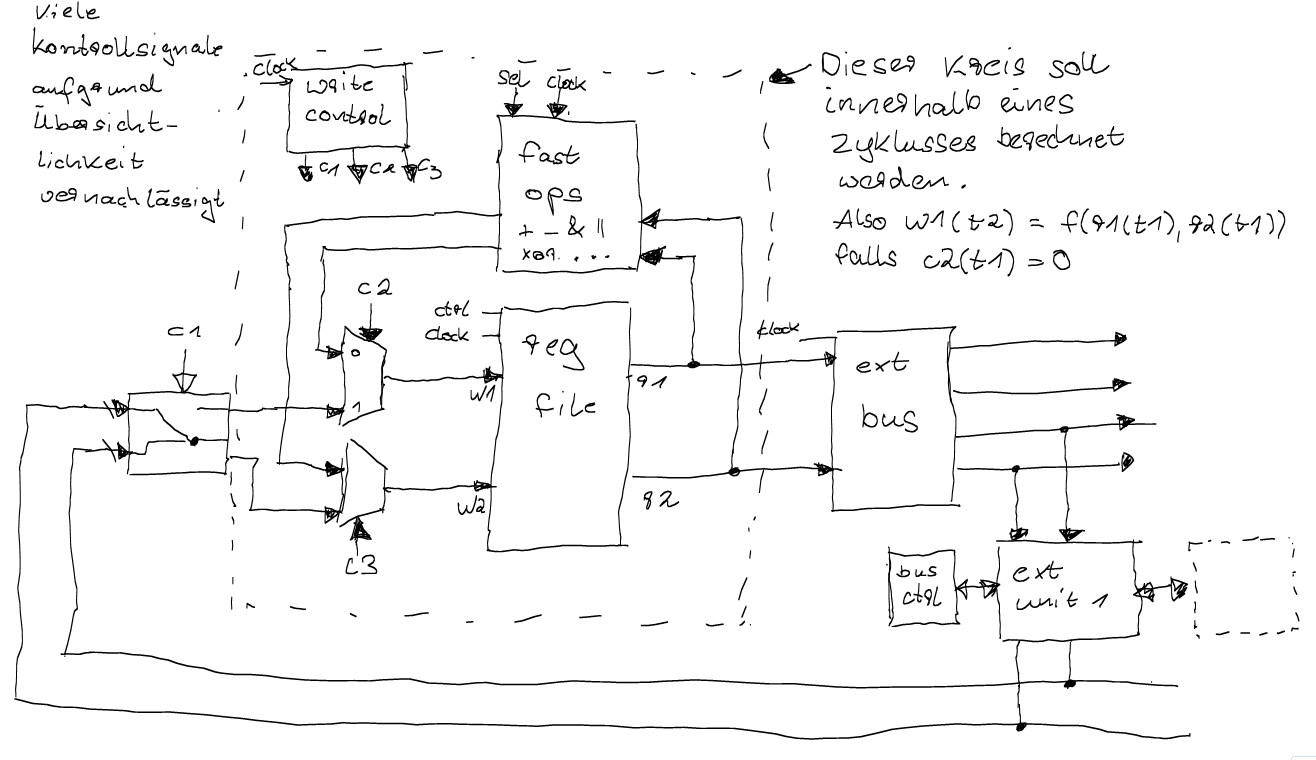 viele
kontrollsignale
aufgrund
Übersicht-
lichkeit
vernachlässigt
clock
write
control
c1 c2 c3
sel clock
fast
ops
+ - & ||
xor ...
Dieser Kreis soll
innerhalb eines
Zyklusses berechnet
werden.
Also w1(t2) = f(r1(t1), r2(t1))
falls c2(t1) = 0
c1
c2
0
1
c3
ctrl
clock
reg
file
w1
w2
r1
r2
clock
ext
bus
bus
ctrl
ext
unit 1